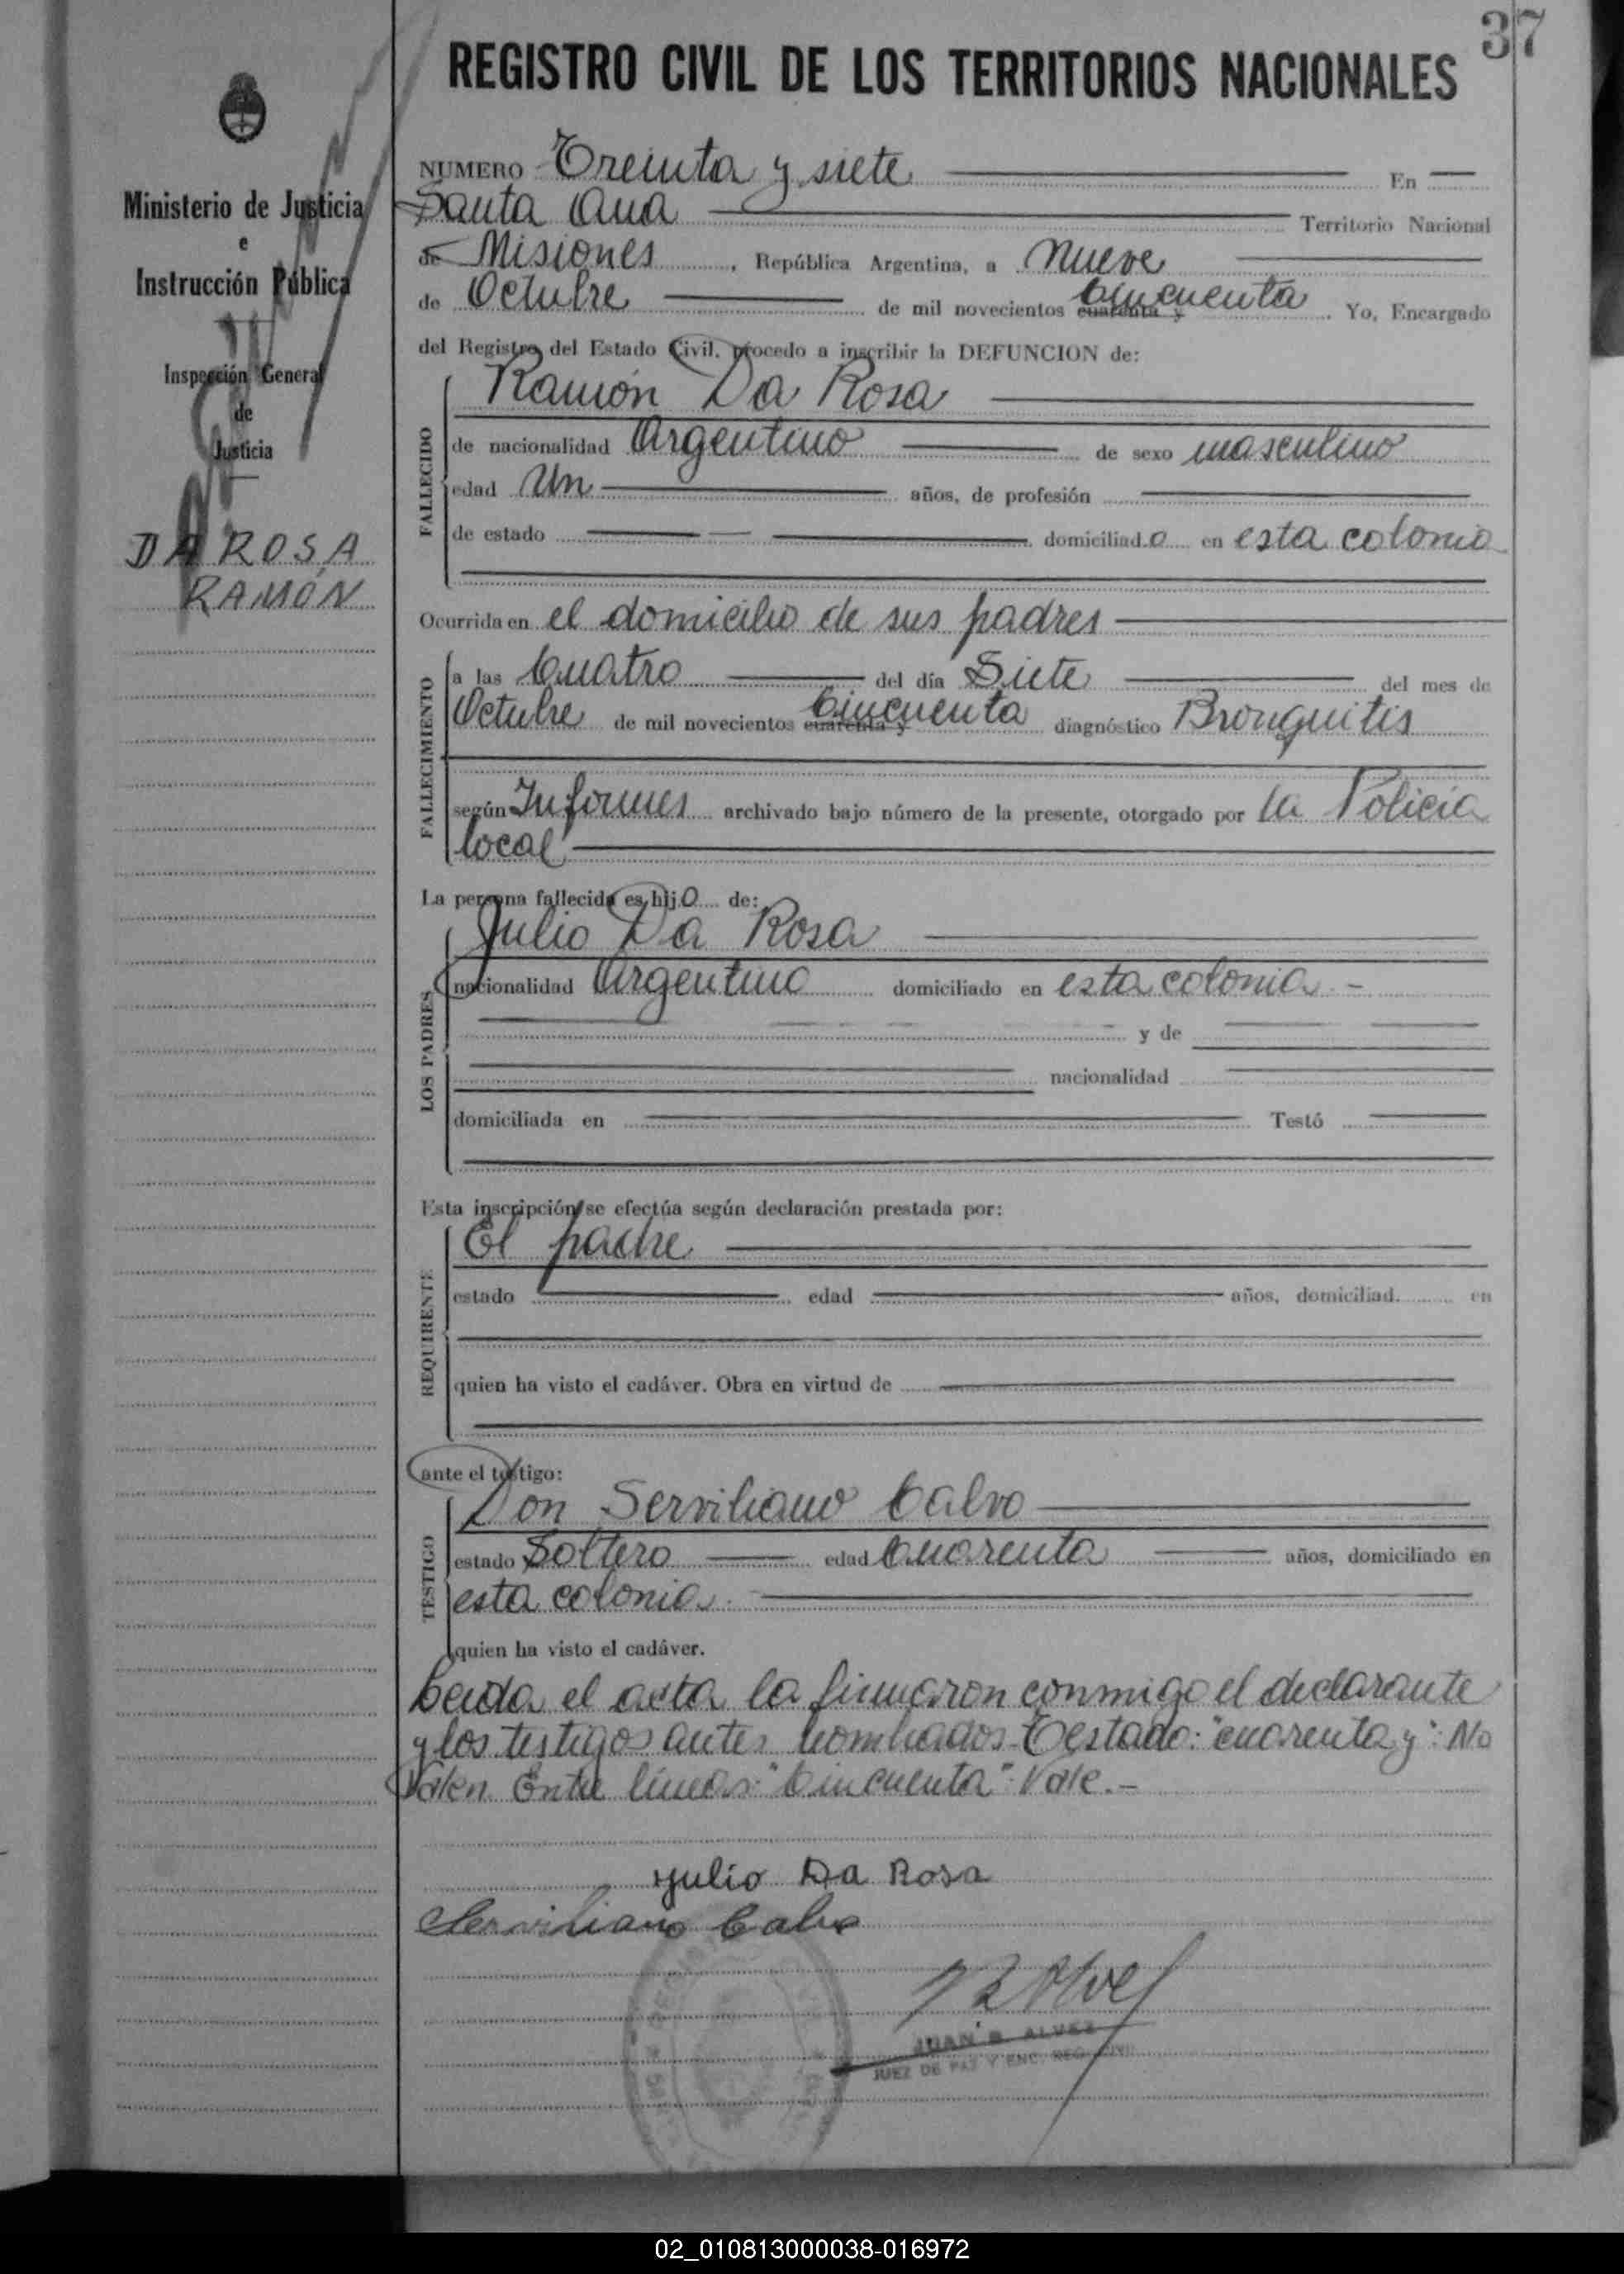 37
REGISTRO CIVIL DE LOS TERRITORIOS NACIONALES
Ministerio de Justicia
e
Instrucción Pública
Inspección General
de
Justicia
DA ROSA
RAMÓN
NUMERO Treinta y siete En
Santa Ana Territorio Nacional
de Misiones, República Argentina, a nueve
de Octubre de mil novecientos cuarenta y Cincuenta. Yo, Encargado
del Registro del Estado Civil, procedo a inscribir la DEFUNCION de:
FALLECIDO
Ramón Da Rosa
de nacionalidad Argentino de sexo masculino
edad Un años, de profesión
de estado domiciliado en esta colonia
Ocurrida en el domicilio de sus padres
FALLECIMIENTO
a las Cuatro del día Siete del mes de
Octubre de mil novecientos cuarenta y Cincuenta diagnóstico Bronquitis
según Informes archivado bajo número de la presente, otorgado por la Policía
local
La persona fallecida es hijo de:
LOS PADRES
Julio Da Rosa
nacionalidad Argentino domiciliado en esta colonia.-
y de
nacionalidad
domiciliada en Testó
Esta inscripción se efectúa según declaración prestada por:
REQUIRENTE
El padre
estado edad años, domiciliad en
quien ha visto el cadáver. Obra en virtud de
ante el testigo:
TESTIGO
Don Serviliano Calvo
estado Soltero edad Cuarenta años, domiciliado en
esta colonia.
quien ha visto el cadáver.
Leida el acta la firmaron conmigo el declarante
y los testigos antes nombrados. Testado: "cuarenta y": No
valen. Entre líneas: "Cincuenta": Vale.-
Julio Da Rosa
Serviliano Calvo
JUAN B. ALVEZ
JUEZ DE PAZ Y ENC. REG. CIVIL
02_010813000038-016972